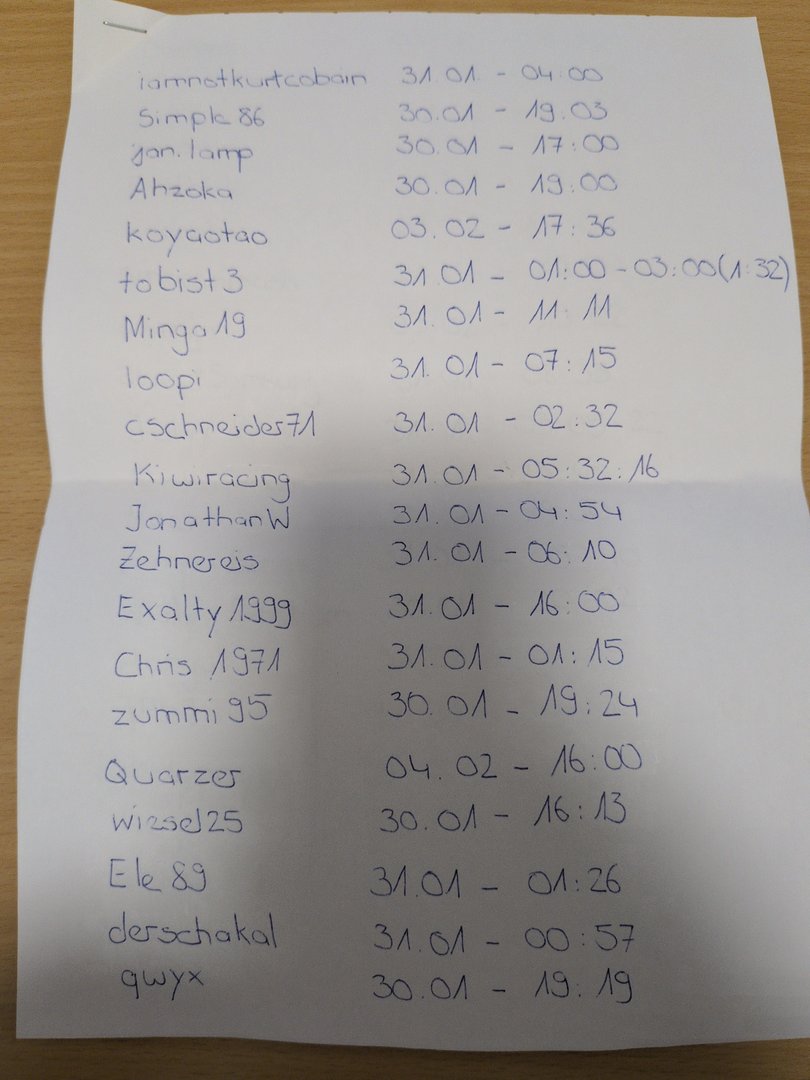 iamnotkurtcobain 31.01 - 04:00
Simple 86 30.01 - 19:03
jan.lamp 30.01 - 17:00
Ahzoka 30.01 - 19:00
koyaotao 03.02 - 17:36
tobist3 31.01 - 01:00 - 03:00 (1:32)
Minga 19 31.01 - 11:11
loopi 31.01 - 07:15
cschneider71 31.01 - 02:32
Kiwiracing 31.01 - 05:32:16
JonathanW 31.01 - 04:54
Zehnereis 31.01 - 06:10
Exalty 1999 31.01 - 16:00
Chris 1971 31.01 - 01:15
zummi 95 30.01 - 19:24
Quarzer 04.02 - 16:00
wiesel25 30.01 - 16:13
Ele 89 31.01 - 01:26
derschakal 31.01 - 00:57
qwyx 30.01 - 19:19